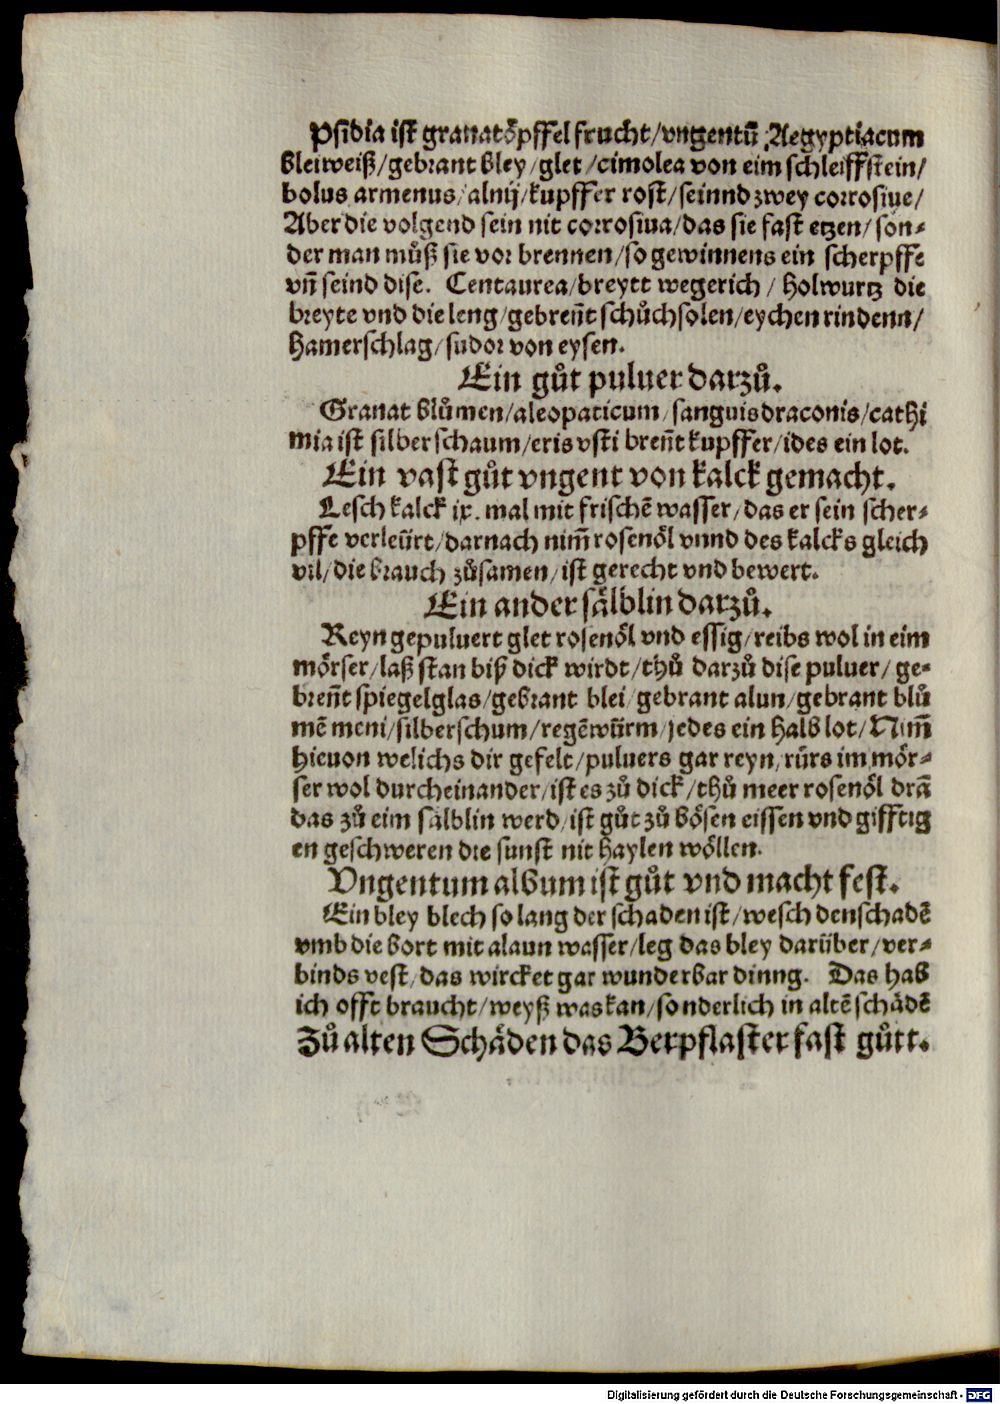 Psidia ist granatöpffel frucht/vngentū Aegyptiacum
bleiweiß/gebrant bley/glet/cimolea von eim schleiffstein/
bolus armenus/alnij/kupffer rost/seinnd zwey corrosiue/
Aber die volgend sein nit corrosiua/das sie fast etzen/son-
der man můß sie vor brennen/so gewinnens ein scherpffe
vñ seind dise. Centaurea/breytt wegerich/holwurtz die
breyte vnd die leng/gebreñt schůchsolen/eychen rindenn/
hamerschlag/sudor von eysen.
Ein gůt puluer darzů.
Granat blůmen/aleopaticum/sanguis draconis/cathi
mia ist silber schaum/eris vsti breñt kupffer/ides ein lot.
Ein vast gůt vngent von kalck gemacht.
Lesch kalck ix. mal mit frischē wasser/das er sein scher-
pffe verleürt/darnach nim̄ rosenöl vnnd des kalcks gleich
vil/die brauch zůsamen/ist gerecht vnd bewert.
Ein ander sälblin darzů.
Reyn gepuluert glet rosenöl vnd essig/reibs wol in eim
mörser/laß stan biß dick wirdt/thů darzů dise puluer/ge-
breñt spiegelglas/gebrant blei/gebrant alun/gebrant blů
mē meni/silberschum/regēwürm/jedes ein halb lot/Nim̄
hieuon welichs dir gefelt/puluers gar reyn/rürs im mör-
ser wol durcheinander/ist es zů dick/thů meer rosenöl drā
das zů eim sälblin werd/ist gůt zů bösen eissen vnd gifftig
en geschweren die sunst nit haylen wöllen.
Vngentum album ist gůt vnd macht fest.
Ein bley blech so lang der schaden ist/wesch den schadē
vmb die bort mit alaun wasser/leg das bley darüber/ver-
binds vest/das wircket gar wunderbar dinng. Das hab
ich offt braucht/weyß was kan/sonderlich in altē schädē
Zů alten Schäden das Berpflaster fast gůtt.
Digitalisierung gefördert durch die Deutsche Forschungsgemeinschaft - DFG